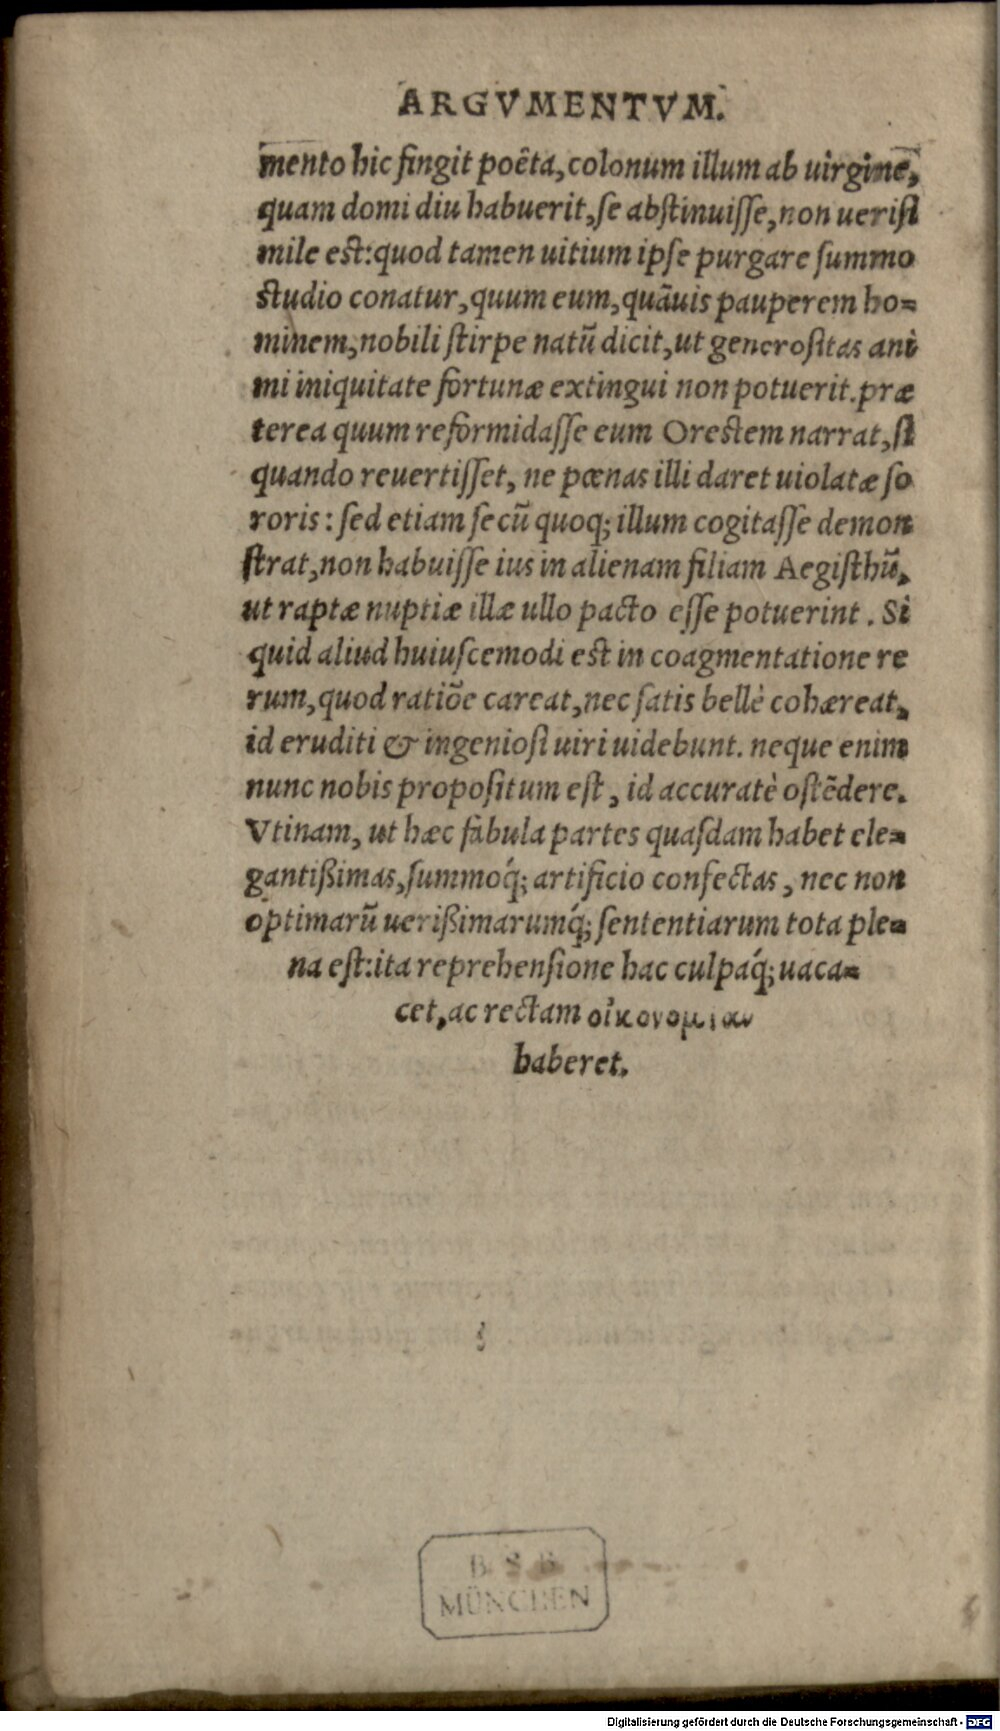 ARGVMENTVM.
mento hic fingit poêta, colonum illum ab uirgine,
quam domi diu habuerit, se abstinuisse, non uerisi
mile est: quod tamen uitium ipse purgare summo
studio conatur, quum eum, quãuis pauperem ho-
minem, nobili stirpe natũ dicit, ut generositas ani
mi iniquitate fortunæ extingui non potuerit. præ
terea quum reformidasse eum Orestem narrat, si
quando reuertisset, ne pœnas illi daret uiolatæ so
roris: sed etiam secũ quoq; illum cogitasse demon
strat, non habuisse ius in alienam filiam Aegisthũ,
ut raptæ nuptiæ illæ ullo pacto esse potuerint. Si
quid aliud huiuscemodi est in coagmentatione re
rum, quod ratiõe careat, nec satis bellè cohæreat,
id eruditi & ingeniosi uiri uidebunt. neque enim
nunc nobis propositum est, id accuratè ostẽdere.
Vtinam, ut hæc fabula partes quasdam habet ele-
gantißimas, summoq́; artificio confectas, nec non
optimarũ uerißimarumq́; sententiarum tota ple-
na est: ita reprehensione hac culpaq́; uaca-
cet, ac rectam οἰκονομίαν
haberet.
BSB
MÜNCHEN
Digitalisierung gefördert durch die Deutsche Forschungsgemeinschaft - DFG